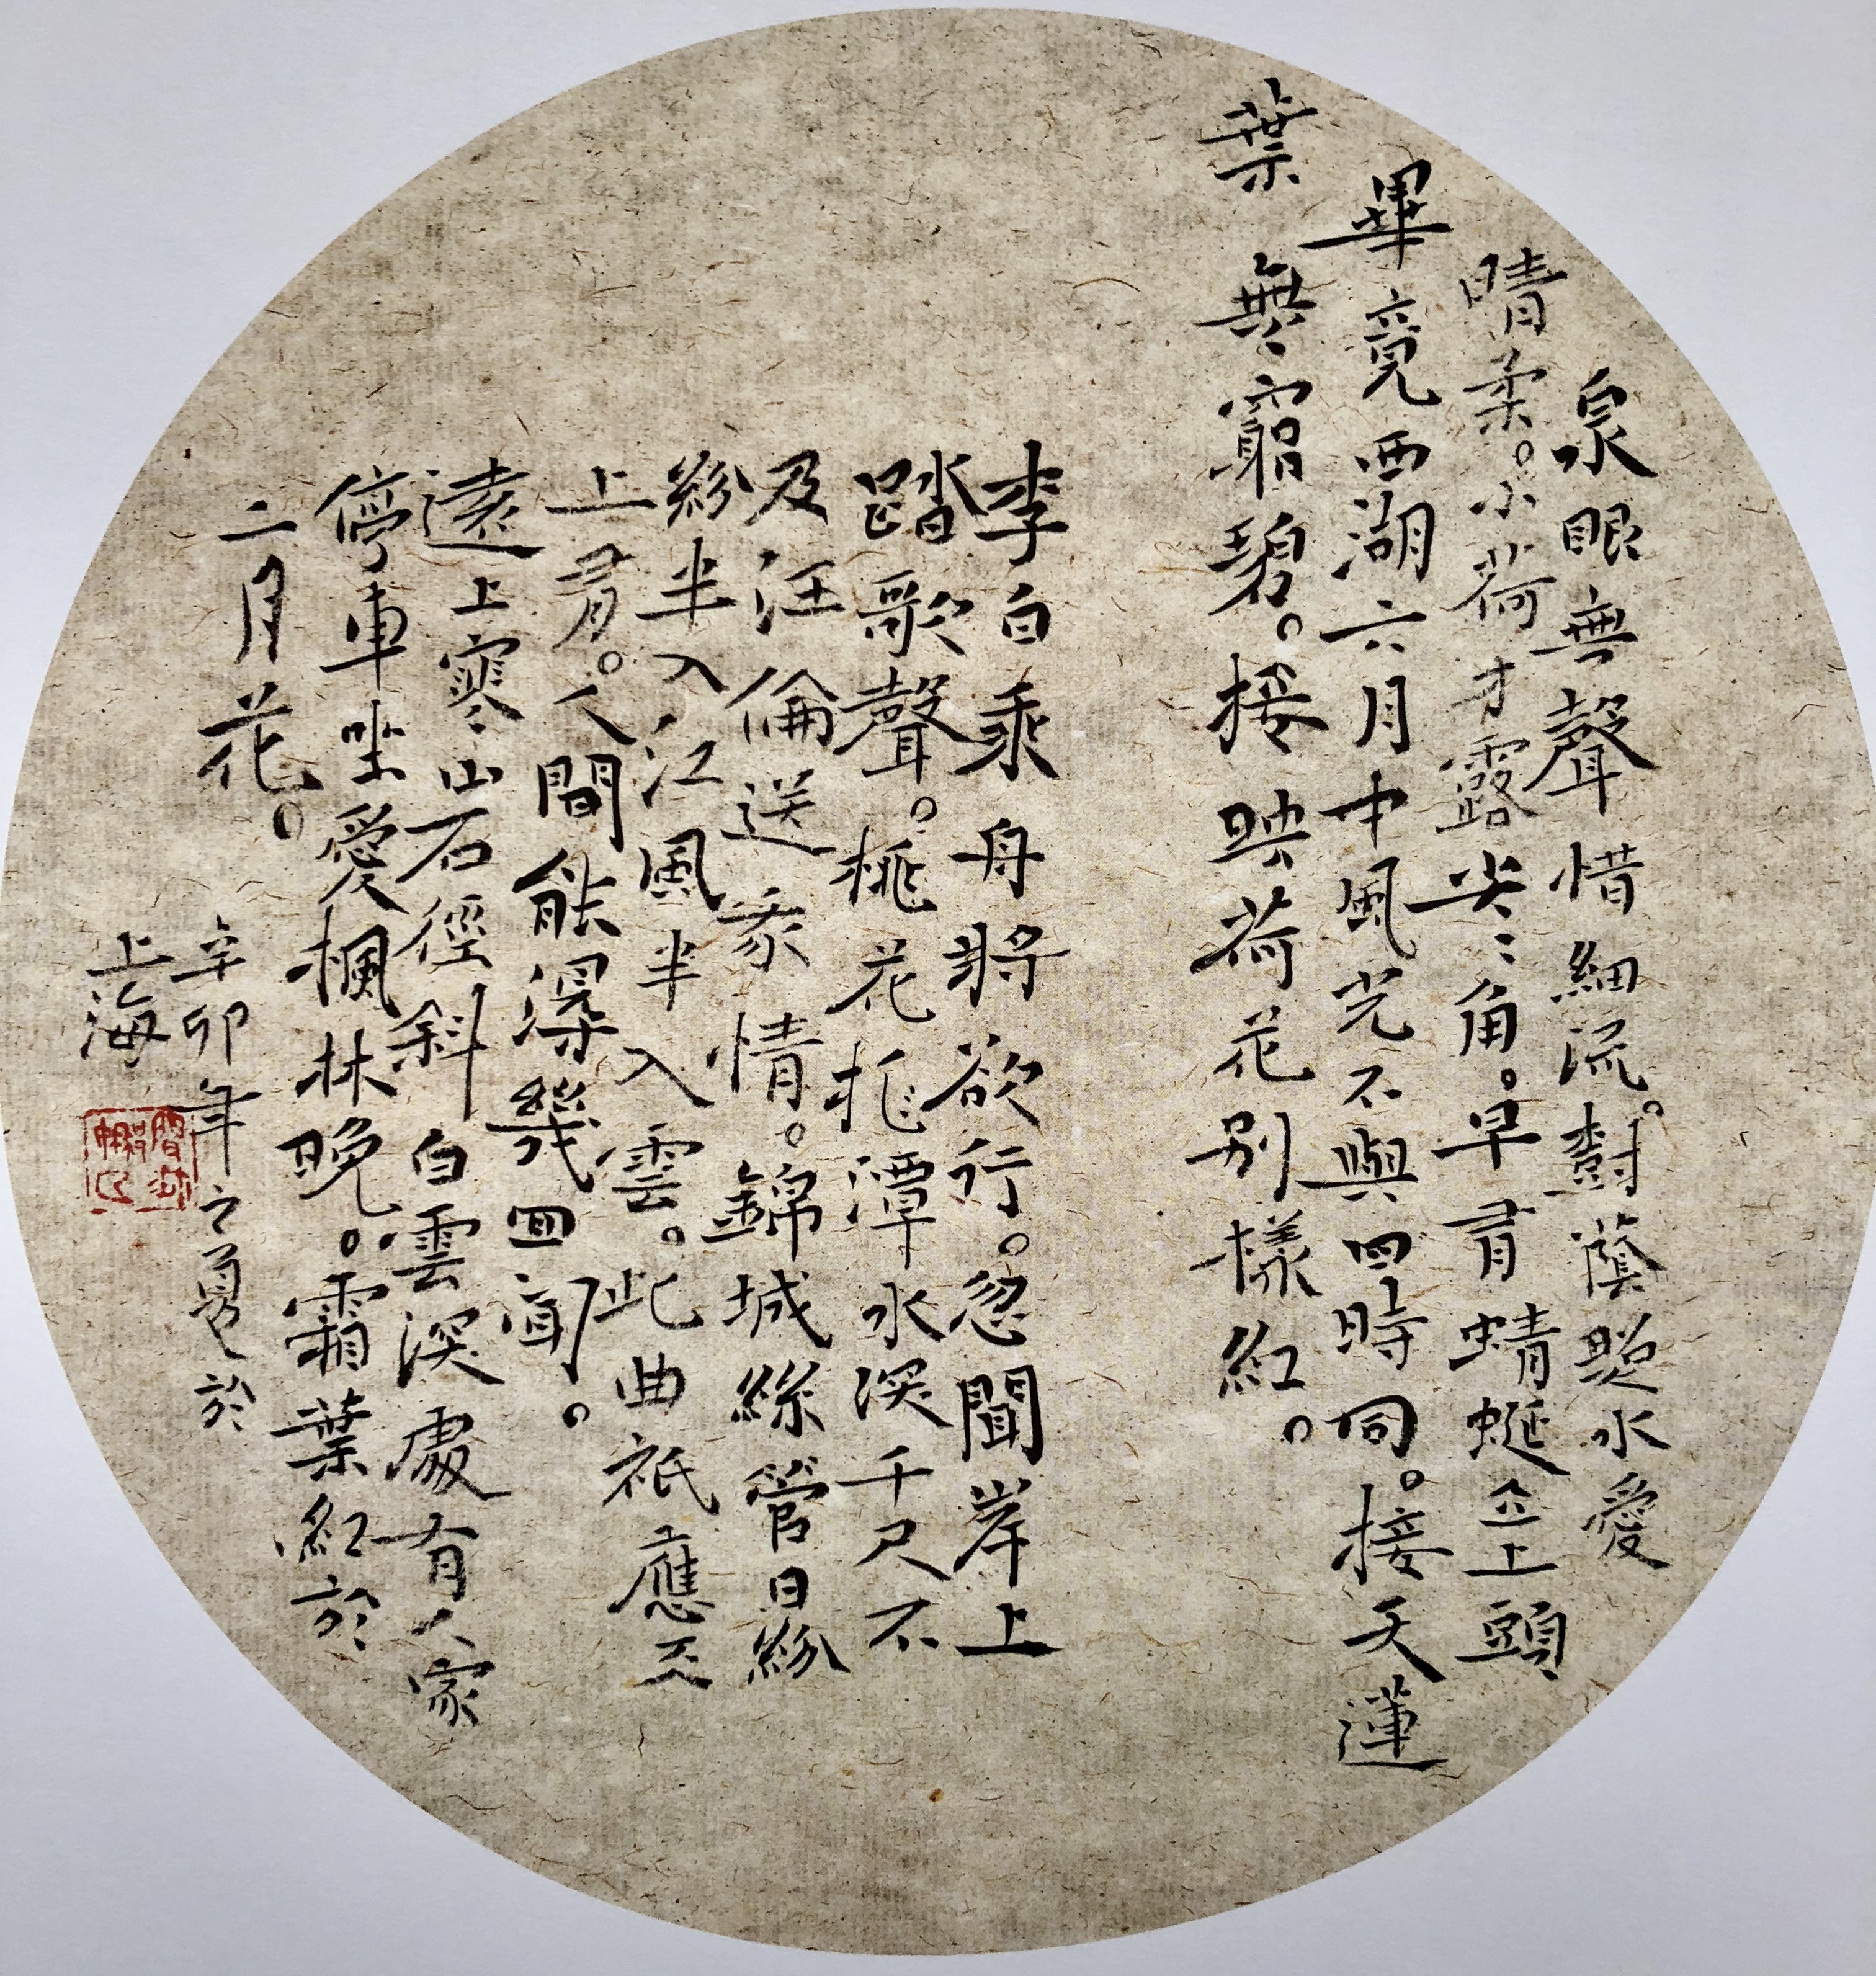 泉眼無聲惜細流。樹蔭照水愛
晴柔。小荷才露尖〻角。早有蜻蜓立上頭
畢竟西湖六月中風光不與四時同。接天蓮
葉無窮碧。接映荷花別樣紅。
李白乘舟將欲行。忽聞岸上
踏歌聲。桃花桃潭水深千尺不
及汪倫送我情。錦城絲管日紛
紛半入江風半入雲。此曲祇應天
上有。人間能深幾回聞。
遠上寒山石徑斜白雲深處有人家
停車坐愛楓林晚。霜葉紅於
二月花。
辛卯年之夏於
上海